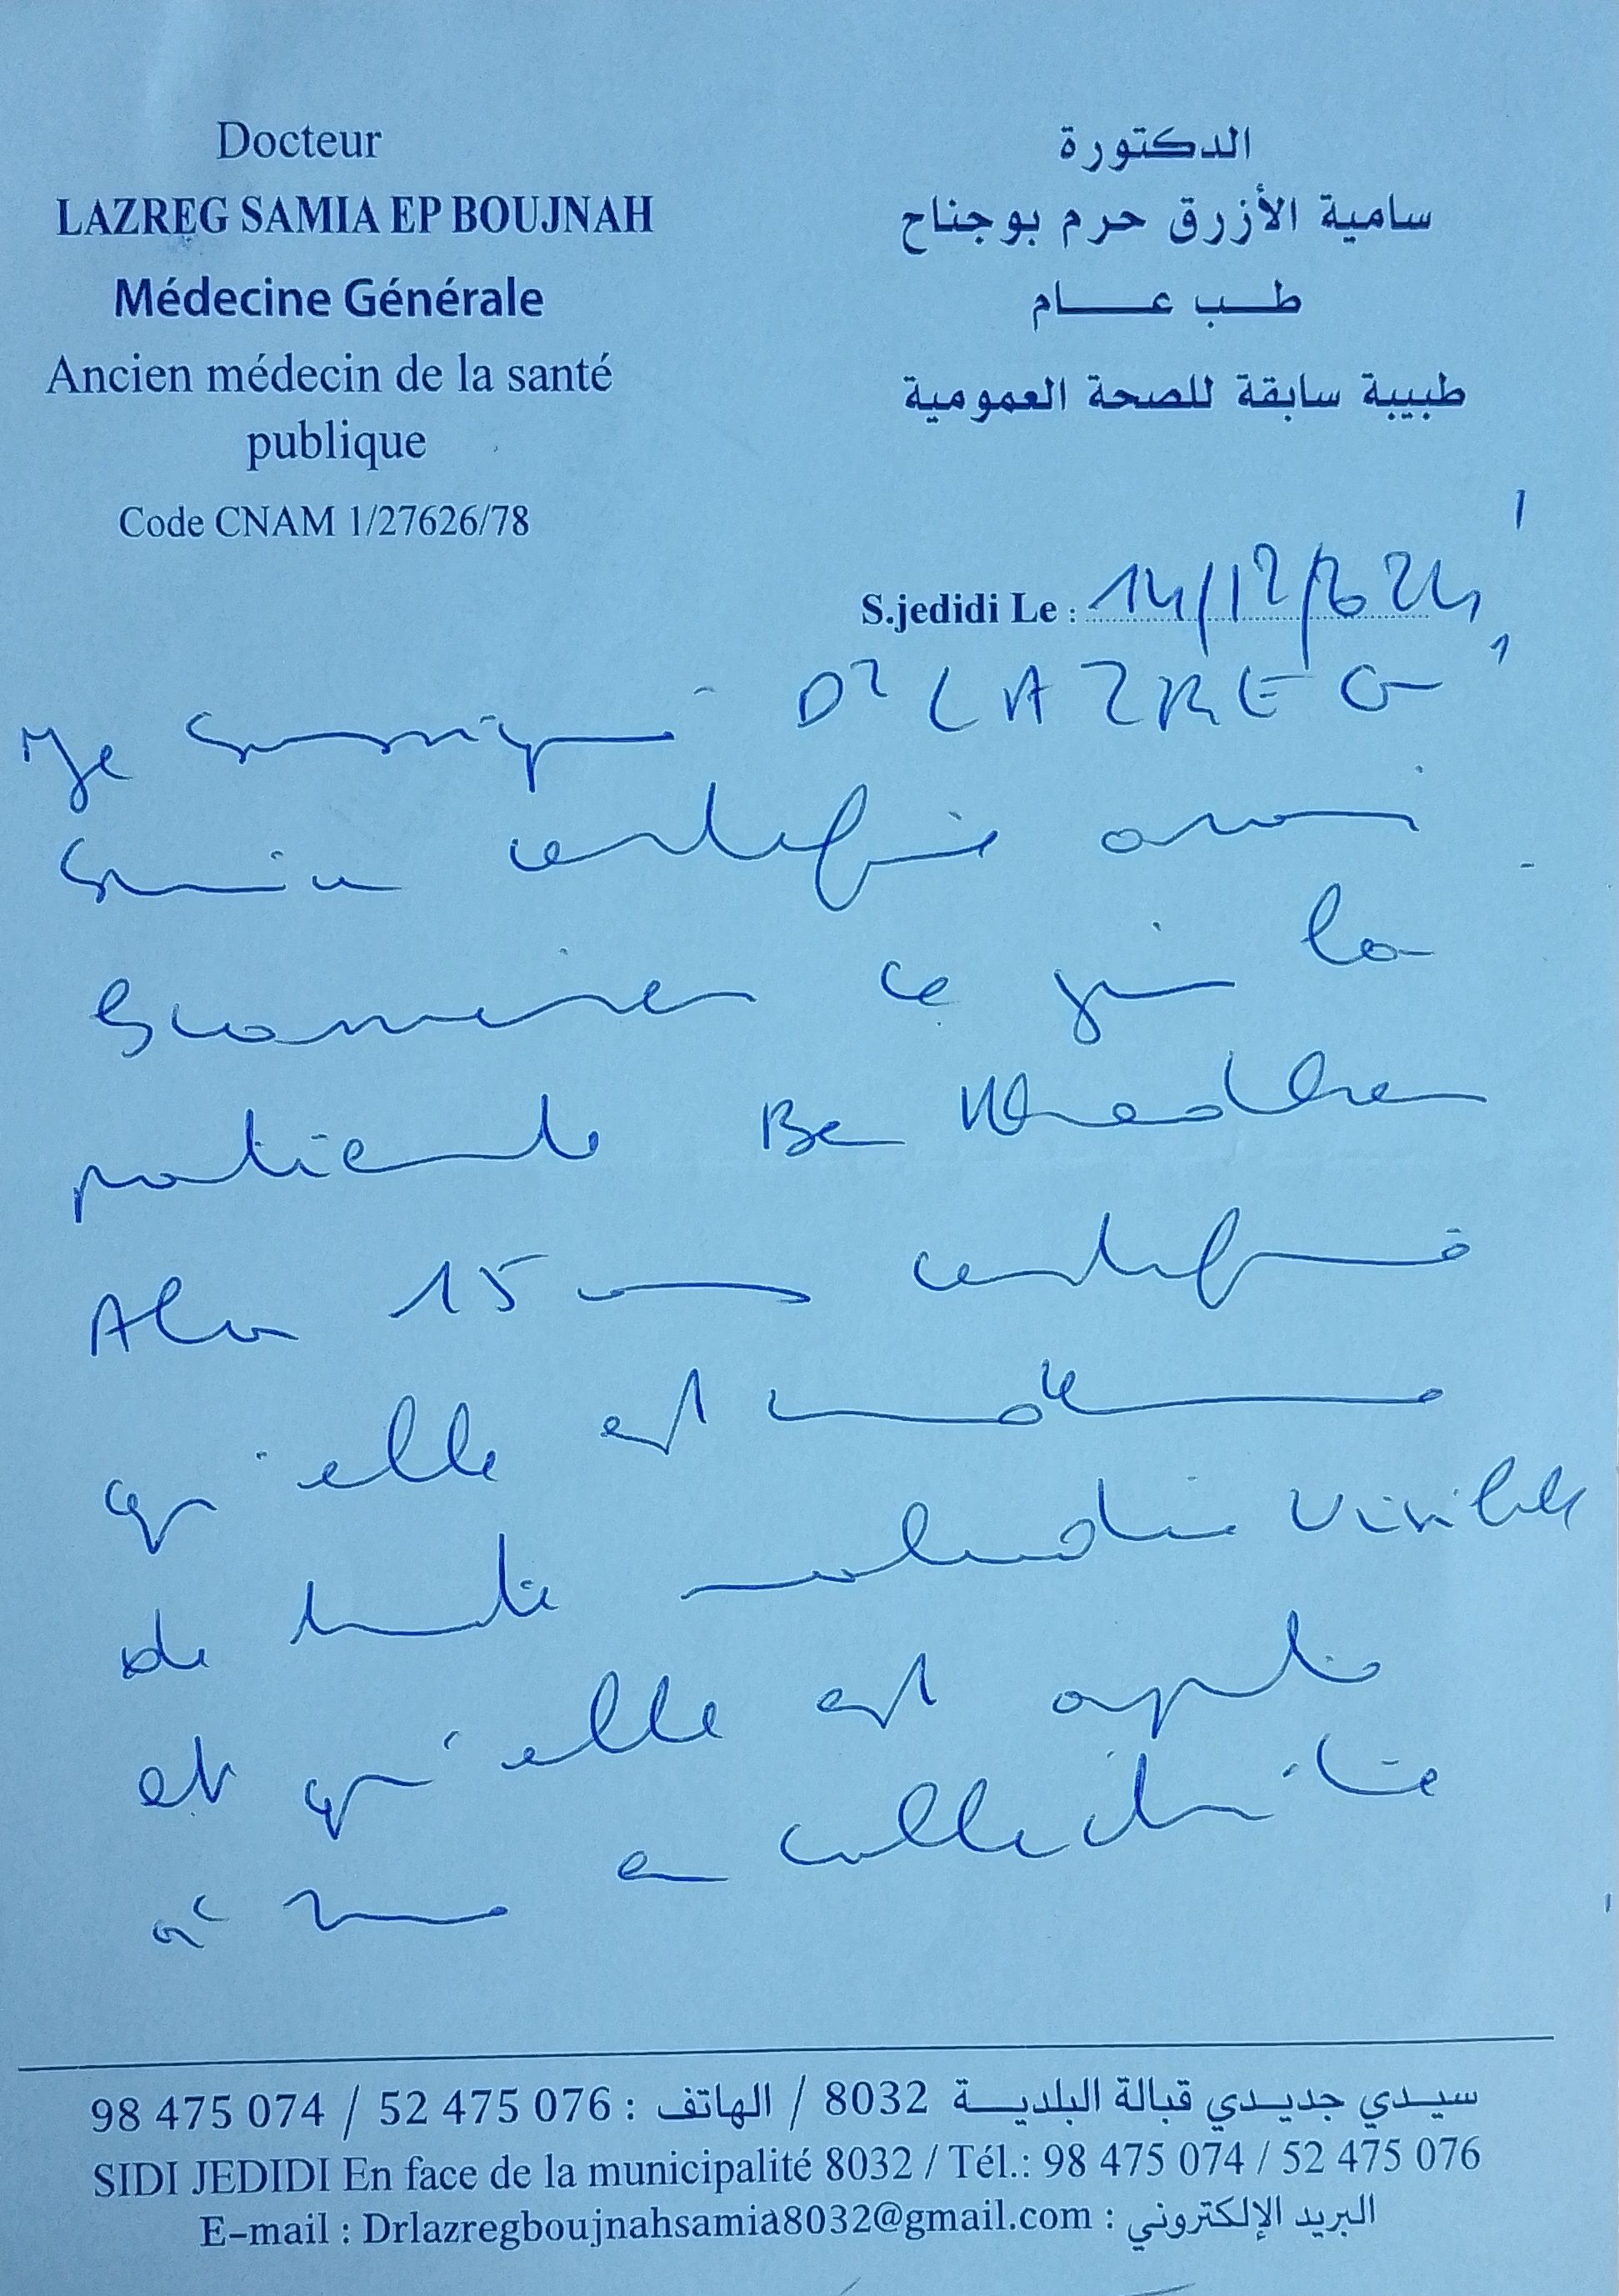 Docteur
LAZREG SAMIA EP BOUJNAH
Médecine Générale
Ancien médecin de la santé
publique
Code CNAM 1/27626/78
الدكتورة
سامية الأزرق حرم بوجناح
طب عام
طبيبة سابقة للصحة العمومية
S.jedidi Le : 14/12/2024
Je soussigné Dr LAZREG
Samia certifie avoir
examiner ce jour la
patiente Ben Khedher
15 ans certifie
qu'elle est indemne
de toute maladie visible
et qu'elle est apte
à vivre en collectivité
سيدي جديدي قبالة البلدية 8032 / الهاتف : 98 475 074 / 52 475 076
SIDI JEDIDI En face de la municipalité 8032 / Tél.: 98 475 074 / 52 475 076
E-mail : Drlazregboujnahsamia8032@gmail.com : البريد الإلكتروني